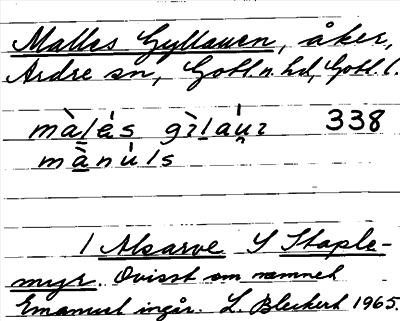 Malles Gyllauen, åker,
Ardre sn, Gotl.n.hd, Gotl.l.
màlés gìlauı 338
mānúls
1 Alsarve S Staple-
myr. Ovisst om namnet
Emanuel ingår. L. Bleckert 1965.